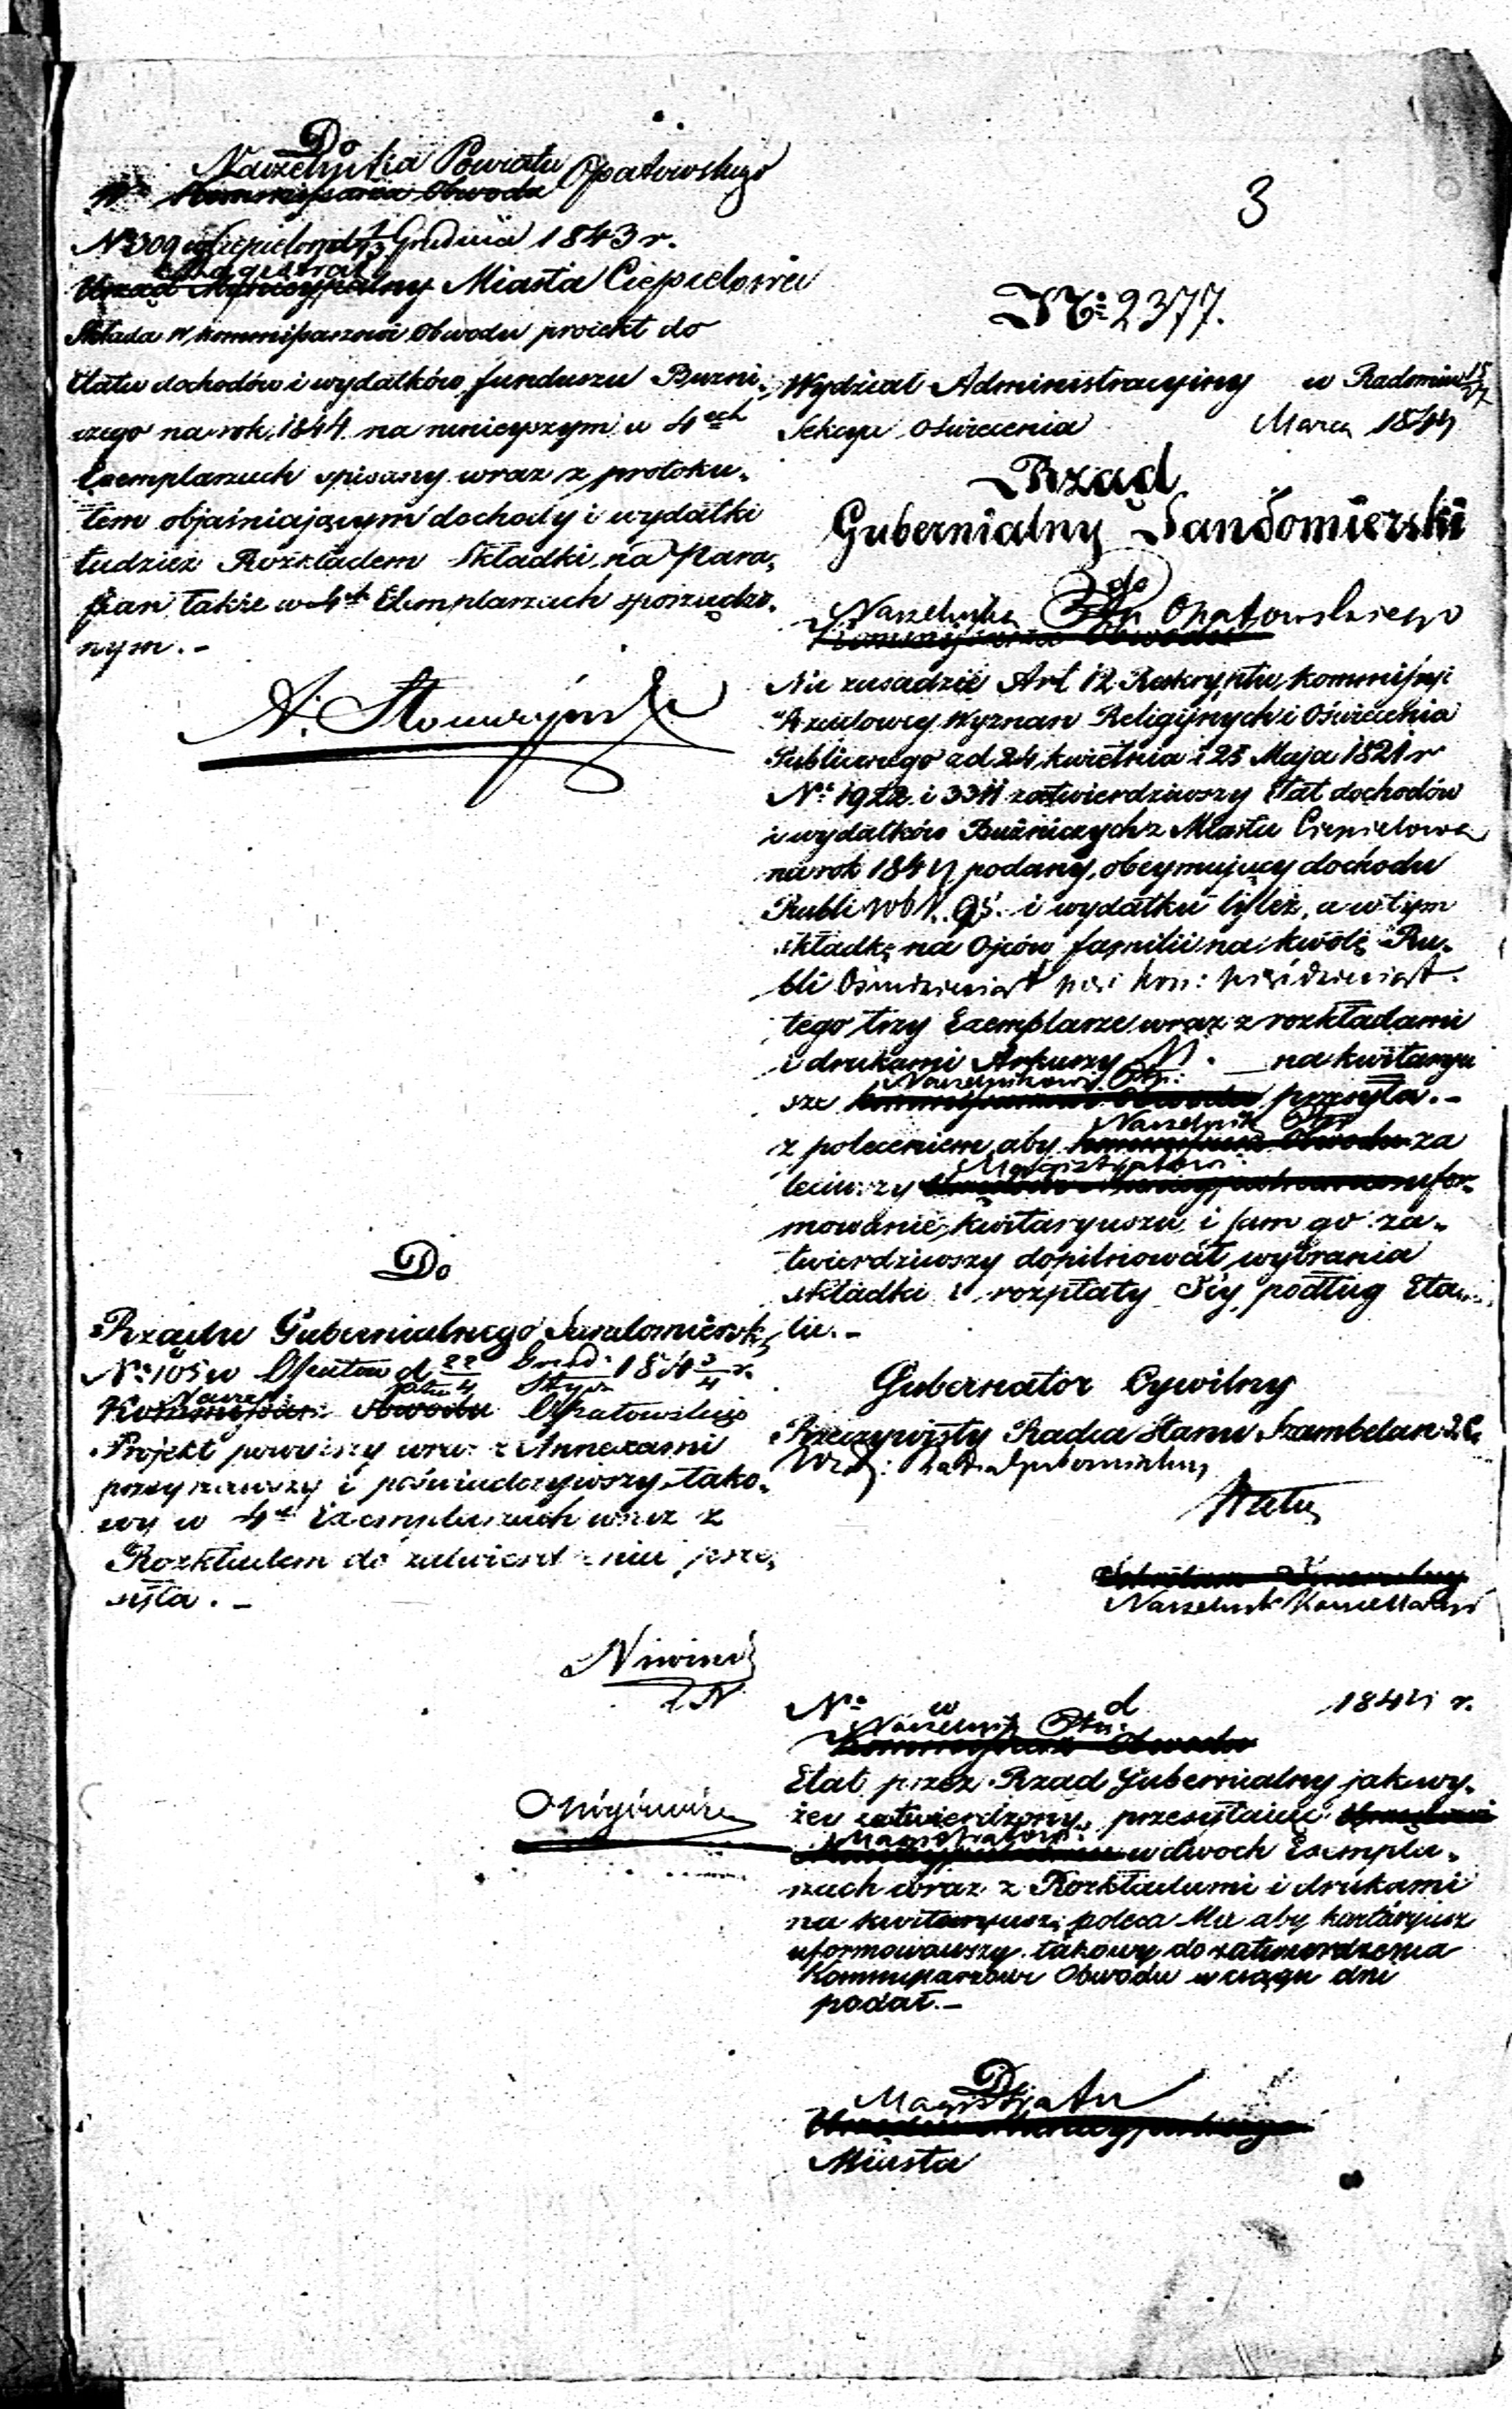 Do
Naczelnika Powiatu Opatowskiego
W° Kommissarza Obwodu
N° 309 w Ciepielowie d 1/13 Grudnia 1843 r.
Magistrat
Urząd Municypalny Miasta Ciepielowa
Składa W Kommissarzowi Obwodu proiekt do
Etatu dochodów i wydatków funduszu Buzni-
czego na rok 1844 na ninieyszym w 4ech
Exemplarzach spisany wraz z protoku-
łem objaśniającym dochody i wydatki
tudzież Rozkładem Składki na Para-
fian także w 4ch Exemplarzach sporządzo-
nym.-
Do
Rządu Gubernialnego Sandomiersk:
N° 105 w Opatow d 22/4 Grud: Stycz 1843/4 r.
Naczel:
Kommissarz Obwodu Opatowskiego
Projekt powyższy wraz z Annexami
przeyrzawszy i poświadczywszy tako-
wy w 4ch Exemplarzach wraz z
Rozkładem do zatwierdzenia prze-
syła.-
3
N° 2377.
Wydział Administracyiny w Radomiu 15/27
Sekcya Oświecenia Marca 1844
Rząd
Gubernialny Sandomierski
do
Naczelnika Ptu Opatowskiego
Kommissarza Obwodu
Na zasadzie Art 12 Reskryptu Kommissyi
Rządowey Wyznań Religijnych i Oświecenia
Publicznego z d 24 kwietnia i 25 Maja 1821 r
N° 1922 i 3311 zatwierdziwszy Etat dochodów
i wydatków Buźniczych z Miasta Ciepielowa
na rok 1844 podany, obeymujący dochodu
Rubli i wydatku tyleż, a w tym
składkę na Ojców familii na kwotę Ru-
bli Ośmdziesiąt kop: pięćdziesiąt
tego trzy Exemplarze wraz z rozkładami
i drukami Arkuszy na kwitaryu
Naczelnikowi Ptu:
sze Kommissarzowi Obwodu przesyła.-
Naczelnik Ptu
z poleceniem, aby Kommissarz Obwodu za
Magistratowi
leciwszy Urzędowi Municypalnemu ufor-
mowanie kwitaryuszu i sam go za-
twierdziwszy dopilnował wybrania
składki i rozpłaty Jey podług Eta-
tu.-
Gubernator Cywilny
Rzeczywisty Radca Stanu Szambelan J.C.
Radca Gubernialny
Sekretarz Jeneralny
Naczelnik Kancellaryi
N° w d 1844 r.
Naczelnik Ptu:
Kommissarz Obwodu
Etat przez Rząd Gubernialny jak wy-
żey zatwierdzony przesyłaiąc Urzędowi
Magistratowi
Municypalnemu w dwoch Exempla-
rzach wraz z Rozkładami i drukami
na kwitaryusz; poleca Mu aby kwitaryusz
uformowawszy takowy do zatwierdzenia
Kommissarzowi Obwodu w ciągu dni
podał.-
Do
Magistratu
Urzędu Municypalnego
Miasta